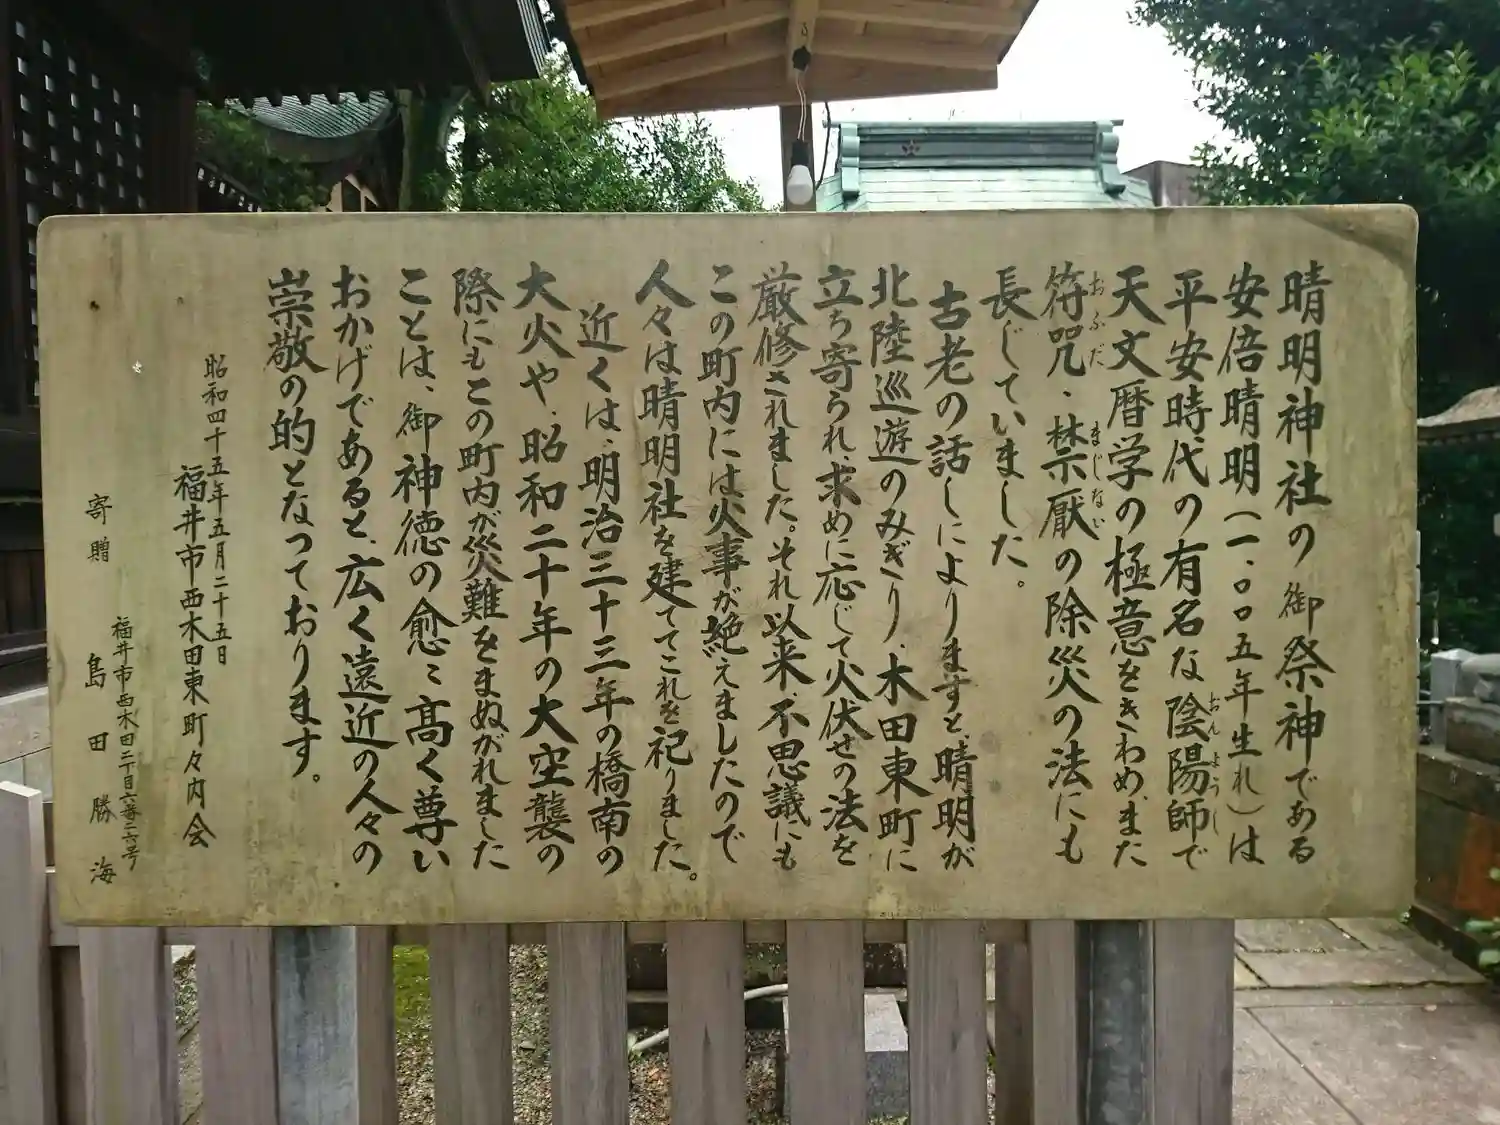 晴明神社の御祭神である
安倍晴明(一、〇〇五年生れ)は
平安時代の有名な陰陽師で
おんようし
天文暦学の極意をきわめ、また
符咒・禁厭の除災の法にも
おふだ
まじない
長じていました。
古老の話しによりますと、晴明が
北陸巡遊のみぎり、木田東町に
立ち寄られ、求めに応じて火伏せの法を
厳修されました。それ以来、不思議にも
この町内には火事が絶えましたので
人々は晴明社を建ててこれを祀りました。
近くは、明治三十三年の橋南の
大火や、昭和二十年の大空襲の
際にもこの町内が災難をまぬがれました
ことは、御神徳の愈々高く尊い
おかげであると、広く遠近の人々の
崇敬の的となっております。
昭和四十五年五月二十五日
福井市西木田東町々内会
福井市西木田二丁目六番二六号
寄贈 島田勝海